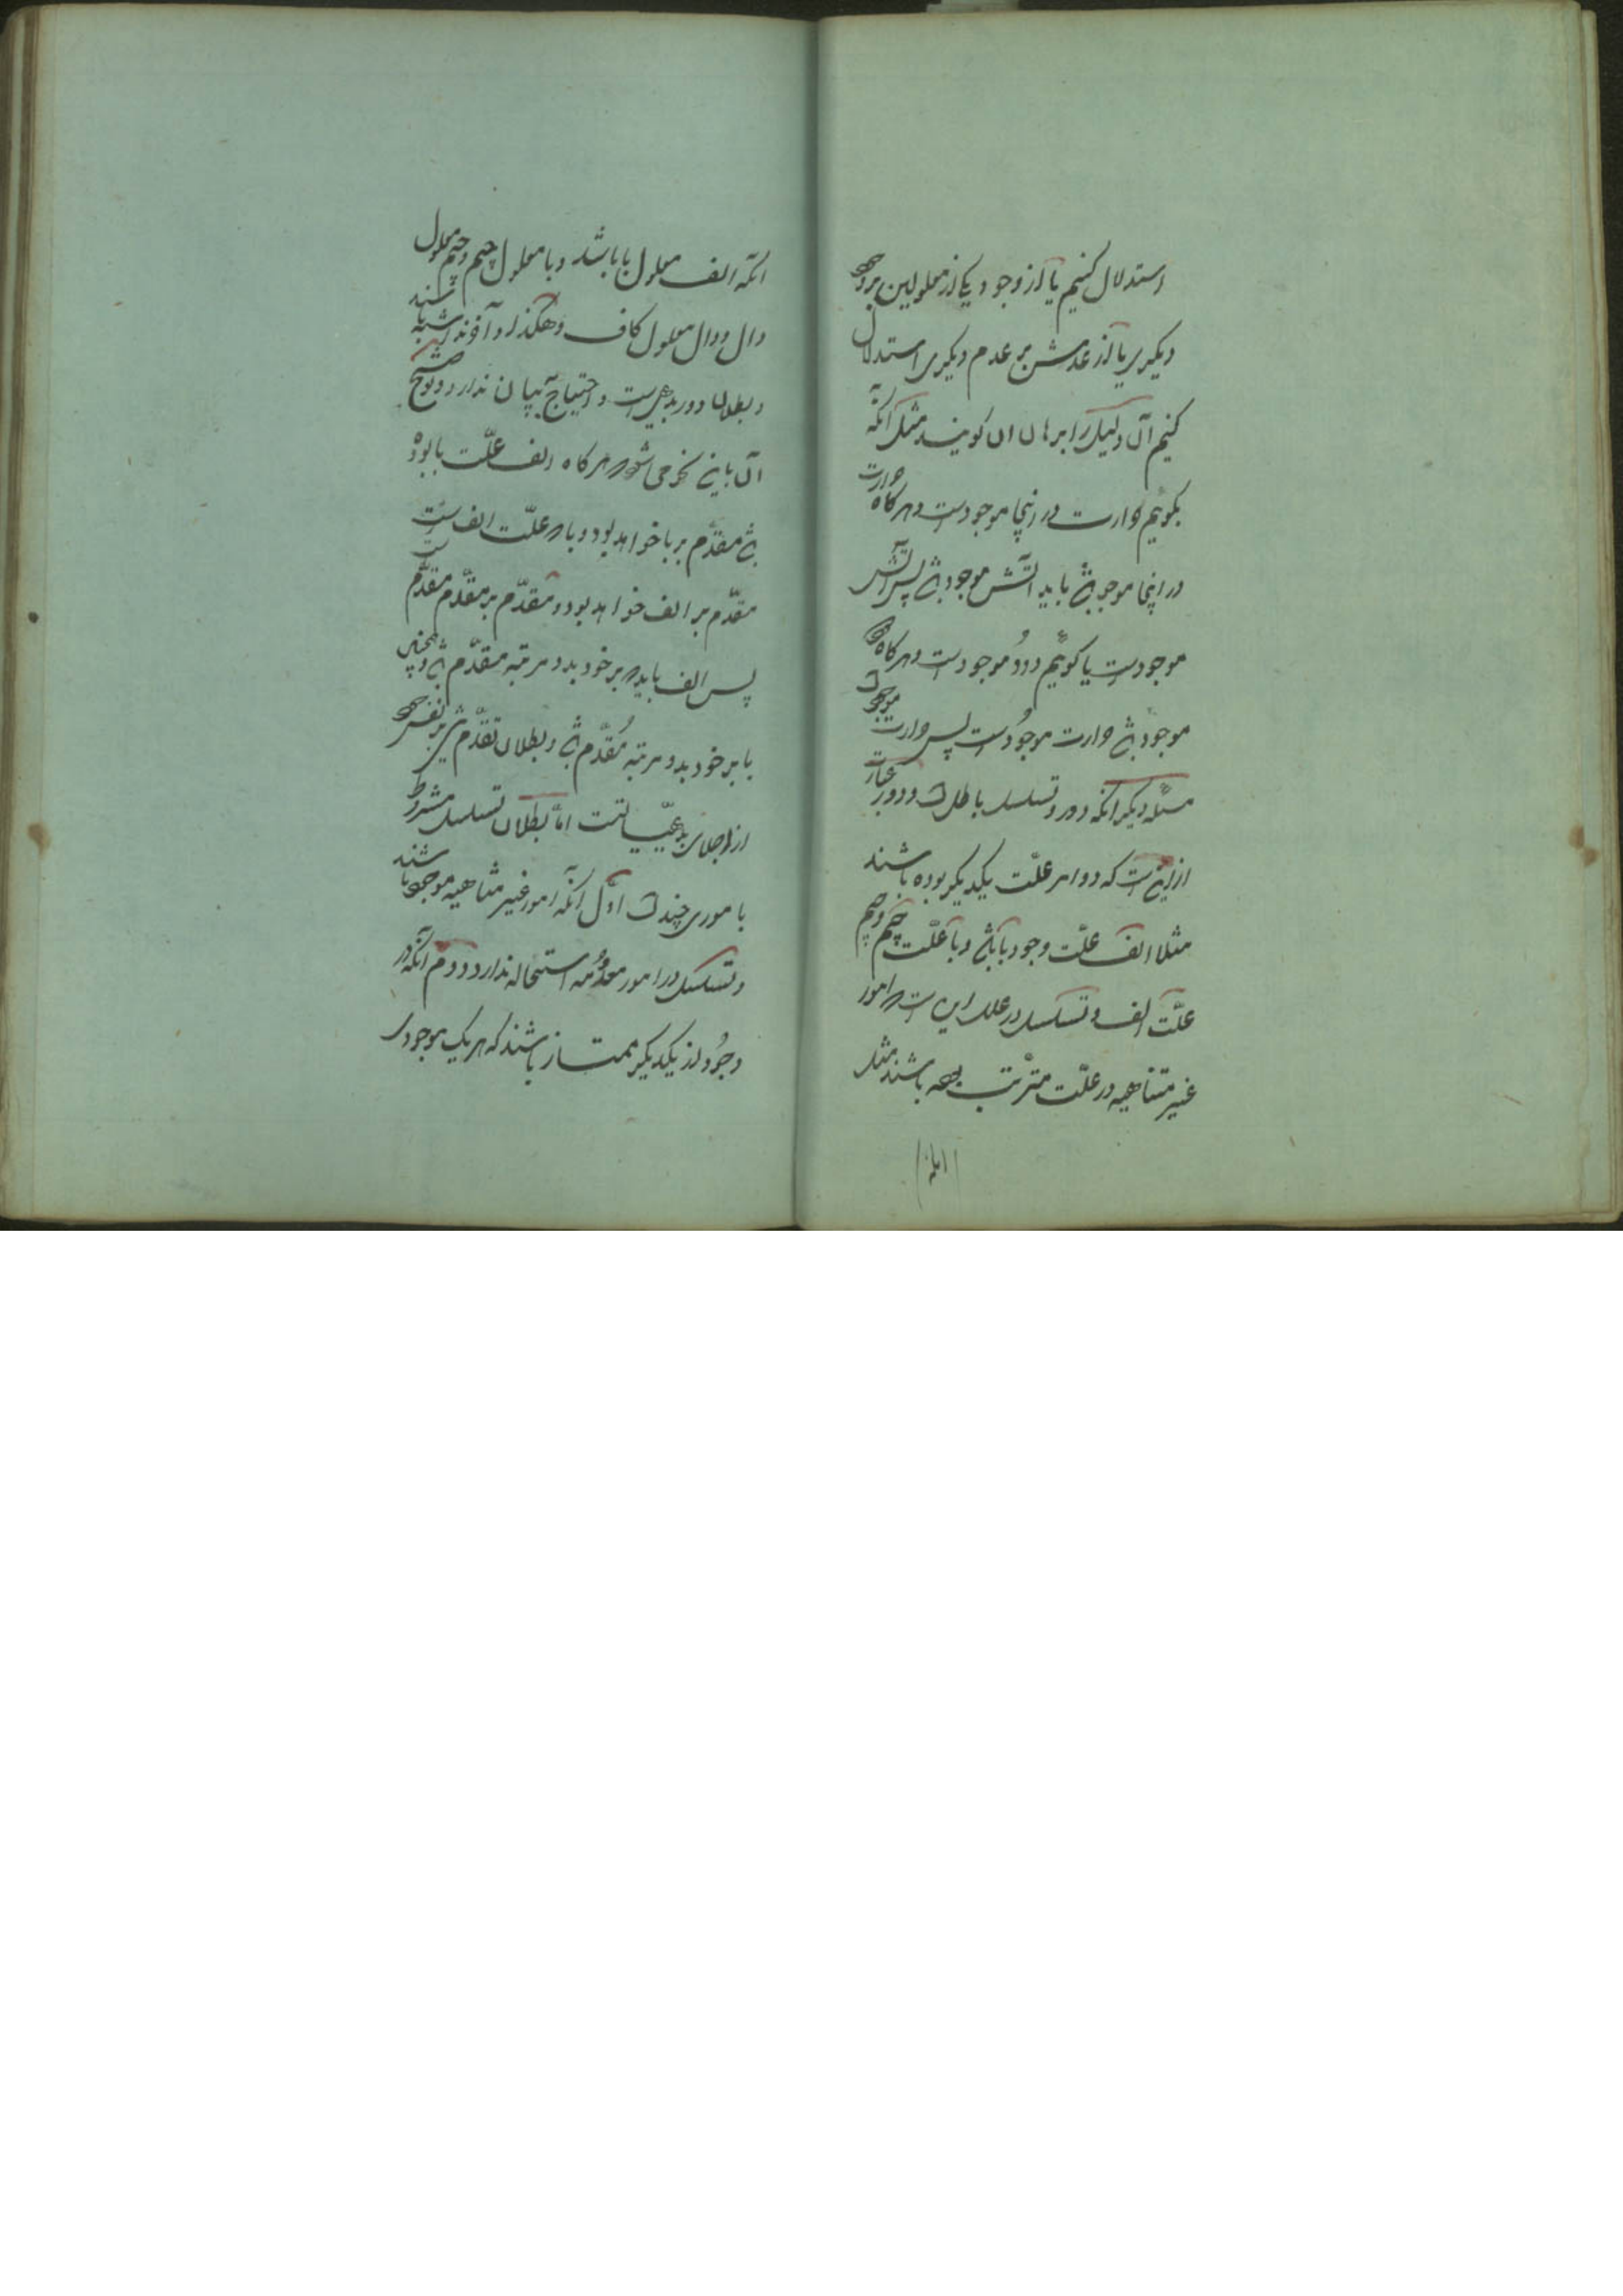 استدلال کنیم یا از وجود یکی از معلولین بر وجود
دیگری یا از عدمش بر عدم دیگری استدلال
کنیم آن دلیل را برهان ان کویند مثل آنکه
بکوئیم حرارت در اینجا موجود است و هرکاه حرارت
در اینجا موجود باشد باید آتش موجود باشد پس آتش
موجود است یا کوئیم دود موجود است و هرکاه دود
موجود باشد حرارت موجود است پس حرارت موجود است
مسئله دیکر آنکه دور و تسلسل باطل است و دور عبارت
از این است که دو امر علّت یکدیکر بوده باشند
مثلا الف علّت وجود با باشد و با علّت جیم و جیم
علّت الف و تسلسل در علل این است که امور
غیر متناهیه در علّت مترتّب بوده باشند مثل
آنکه الف معلول با باشد و با معلول جیم و جیم معلول
دال و دال معلول کاف و هکذا و آخر نداشته باشند
و بطلان دور بدیهی است و احتیاج ببیان ندارد و توضیح
آن باین نحو می شود که هرکاه الف علّت با بوده
باشد مقدّم بر با خواهد بود و با که علّت الف است
مقدّم بر الف خواهد بود و مقدّم بر مقدّم مقدّم است
پس الف باید که بر خود بدو مرتبه مقدّم باشد و همچنین
با بر خود بدو مرتبه مُقدّم باشد و بطلان تقدّم شیء بر نفس خود
از اجلای بدیهیّات است امّا بطلان تسلسل مشروط
بامور چند است اوّل آنکه امور غیر متناهیه موجود باشند
و تسلسل در امور معدُومه استحاله ندارد و دوم آنکه در
وجُود از یکدیکر ممتاز باشند که هر یک موجود